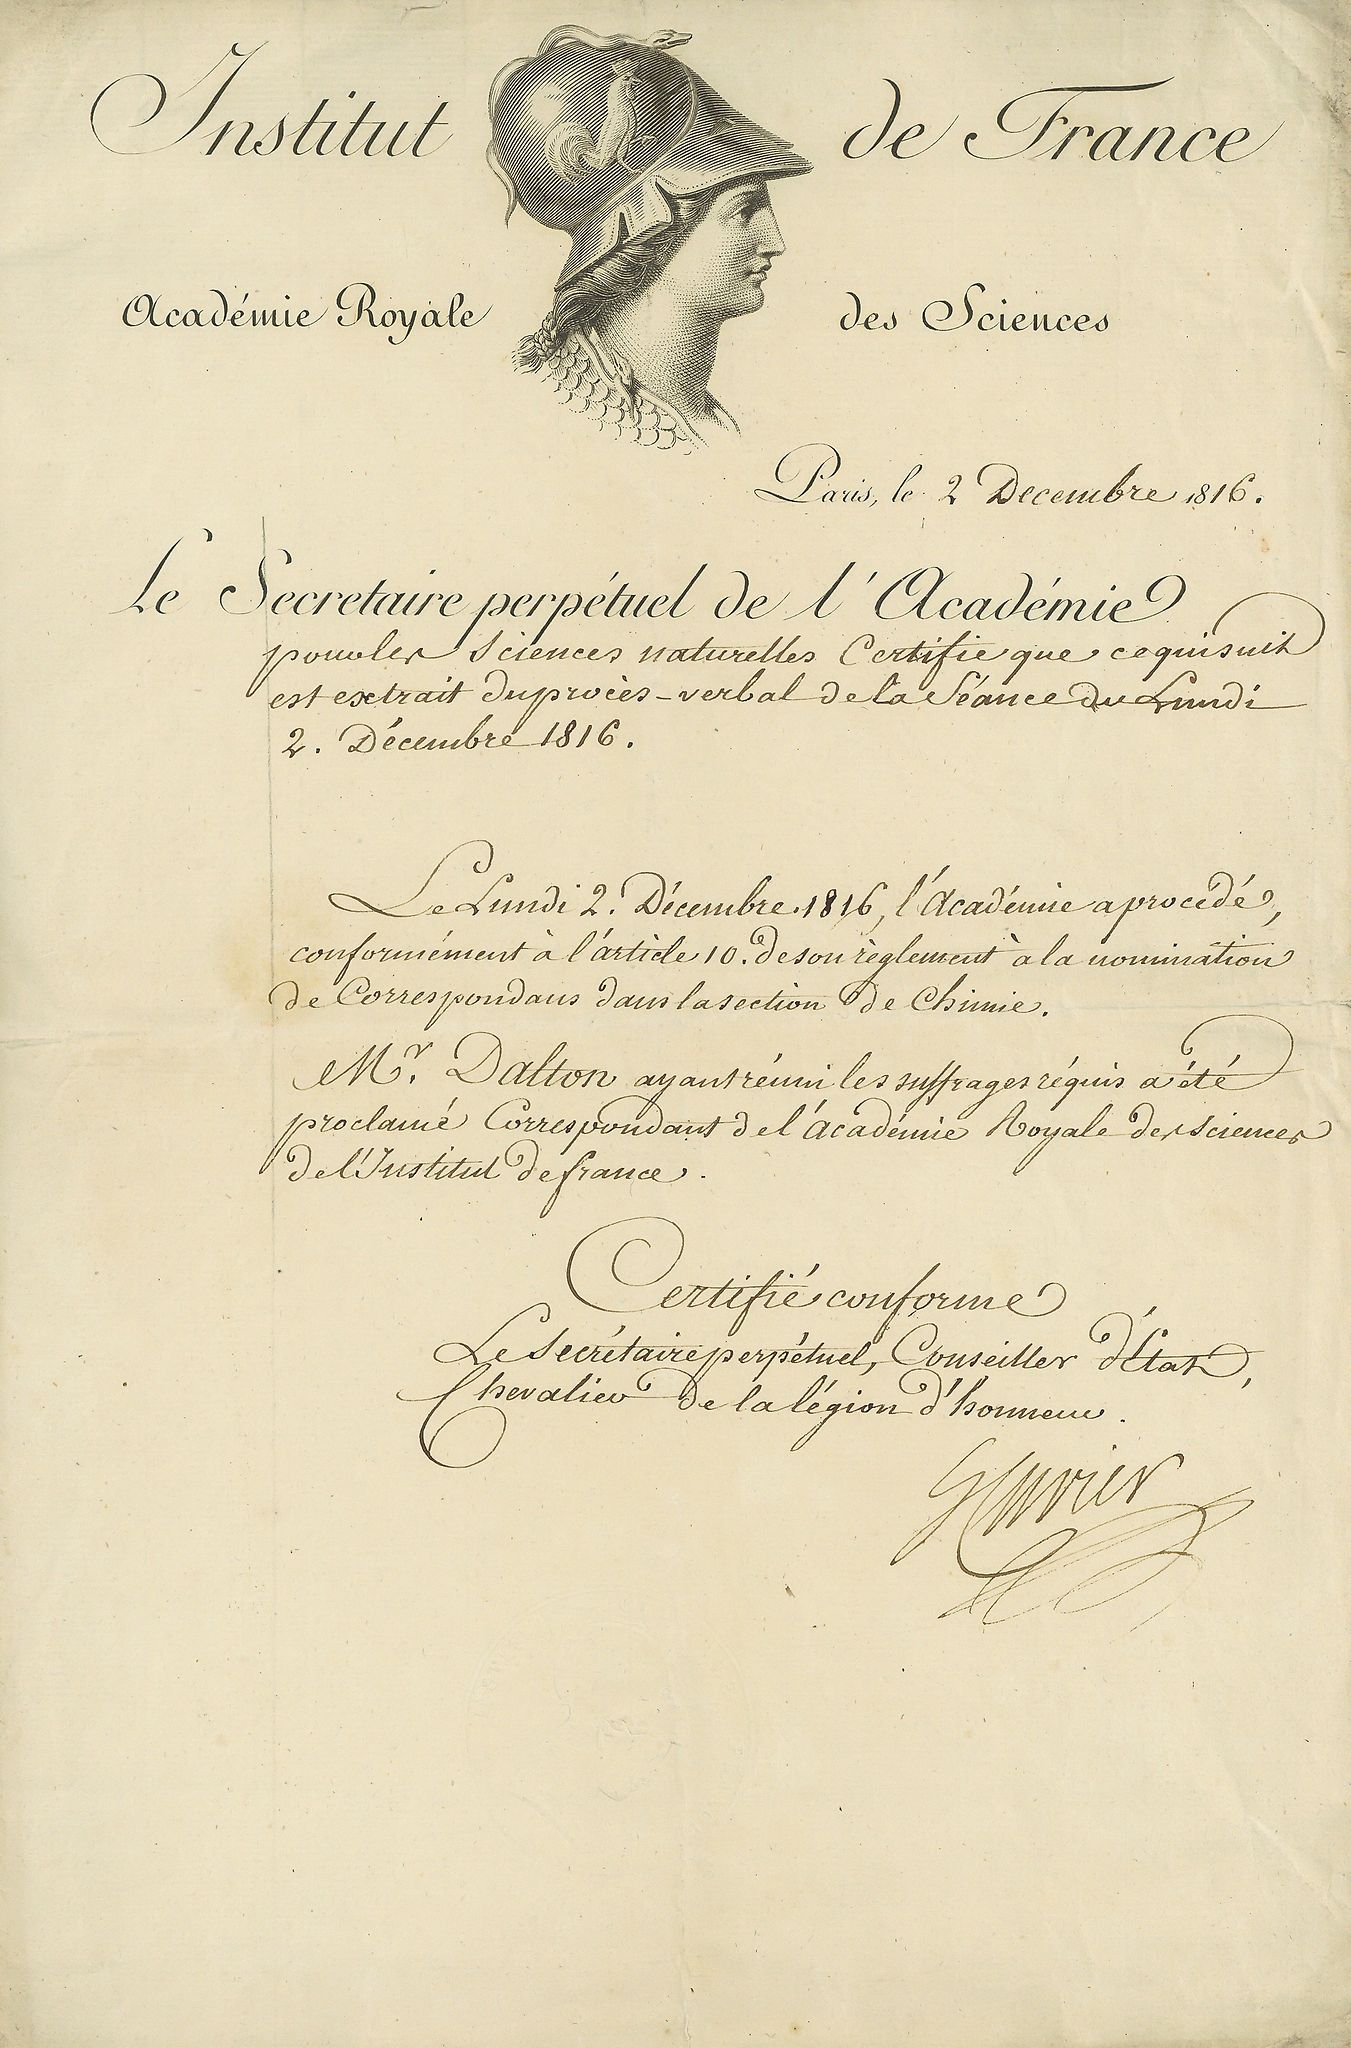 Institut de France
Académie Royale des Sciences
Paris, le 2 Decembre 1816.
Le Secretaire perpétuel de l'Académie
pour les Sciences naturelles Certifie que ce qui suit
est extrait du procès-verbal de la Séance du Lundi
2. Décembre 1816.
Le Lundi 2. Décembre 1816, l'Académie a procédé,
conformément à l'article 10. de son règlement à la nomination
de Correspondans dans la section de Chimie.
Mr. Dalton ayant réuni les suffrages réquis a été
proclamé Correspondant de l'Académie Royale des Sciences
de l'Institut de france.
Certifié conforme
Le Secrétaire perpétuel, Conseiller d'État,
Chevalier de la légion d'honneur.
G Cuvier